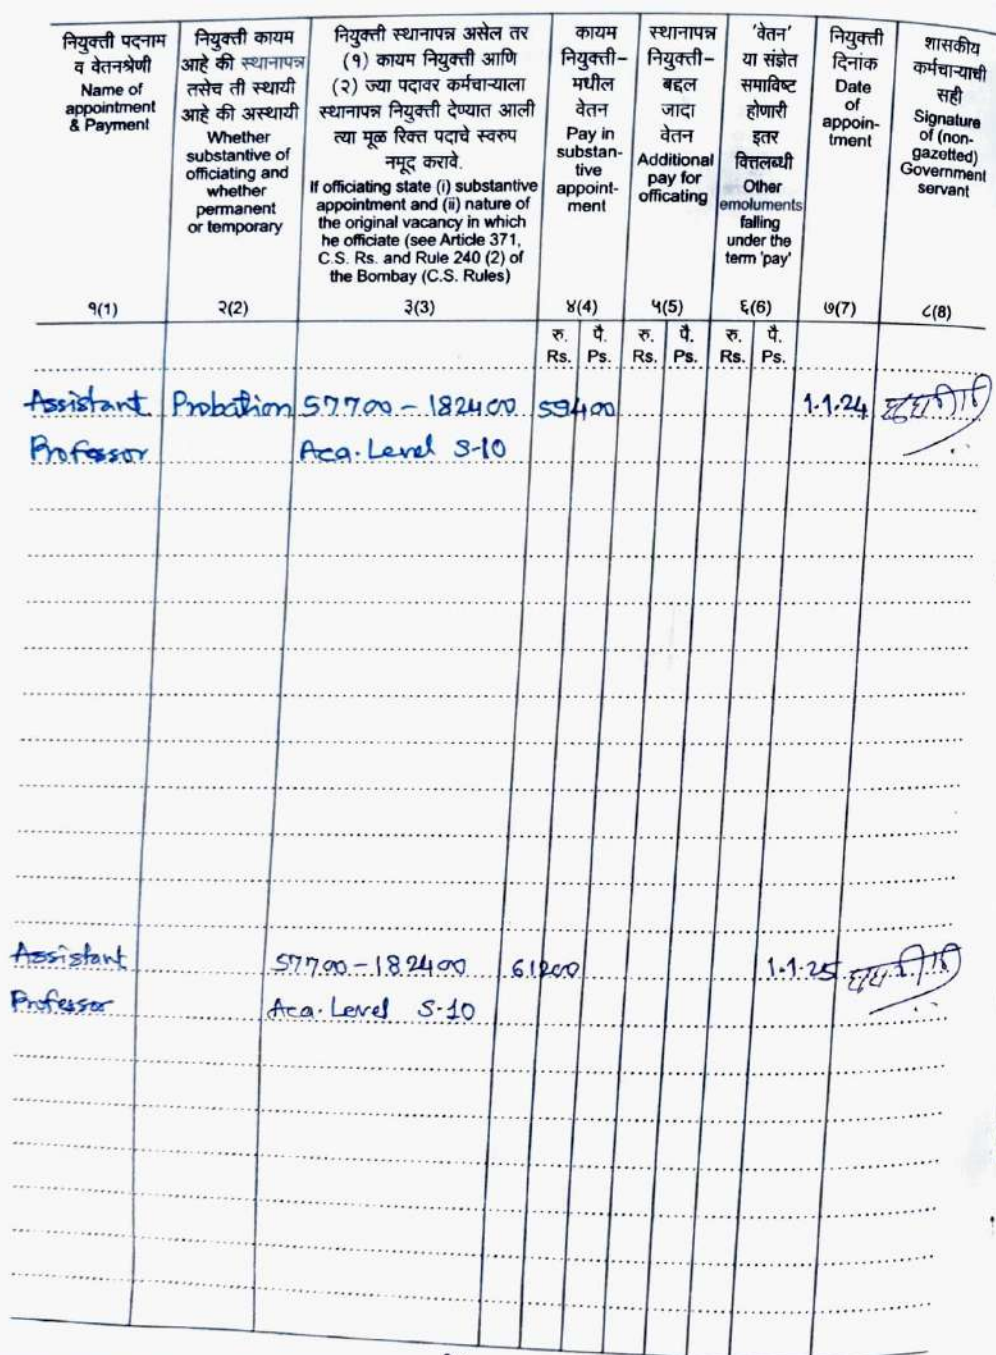 नियुक्ती पदनाम
व वेतनश्रेणी
Name of
appointment
& Payment
नियुक्ती कायम
आहे की स्थानापन्न
तसेच ती स्थायी
आहे की अस्थायी
Whether
substantive of
officiating and
whether
permanent
or temporary
नियुक्ती स्थानापन्न असेल तर
(१) कायम नियुक्ती आणि
(२) ज्या पदावर कर्मचाऱ्याला
स्थानापन्न नियुक्ती देण्यात आली
त्या मूळ रिक्त पदाचे स्वरुप
नमूद करावे.
If officiating state (i) substantive
appointment and (ii) nature of
the original vacancy in which
he officiate (see Article 371,
C.S. Rs. and Rule 240 (2) of
the Bombay (C.S. Rules)
कायम
नियुक्ती–
मधील
वेतन
Pay in
substan-
tive
appoint-
ment
स्थानापन्न
नियुक्ती–
बद्दल
जादा
वेतन
Additional
pay for
officating
'वेतन'
या संज्ञेत
समाविष्ट
होणारी
इतर
वित्तलब्धी
Other
emoluments
falling
under the
term 'pay'
नियुक्ती
दिनांक
Date
of
appoin-
tment
शासकीय
कर्मचाऱ्याची
सही
Signature
of (non-
gazetted)
Government
servant
१(1) २(2) ३(3) ४(4) ५(5) ६(6) ७(7) ८(8)
रु. पै. रु. पै. रु. पै.
Rs. Ps. Rs. Ps. Rs. Ps.
Assistant Probation 57700 - 182400 59400 1.1.24
Professor Aca. Level S-10
Assistant 57700 - 182400 61200 1.1.25
Professor Aca. Level S-10